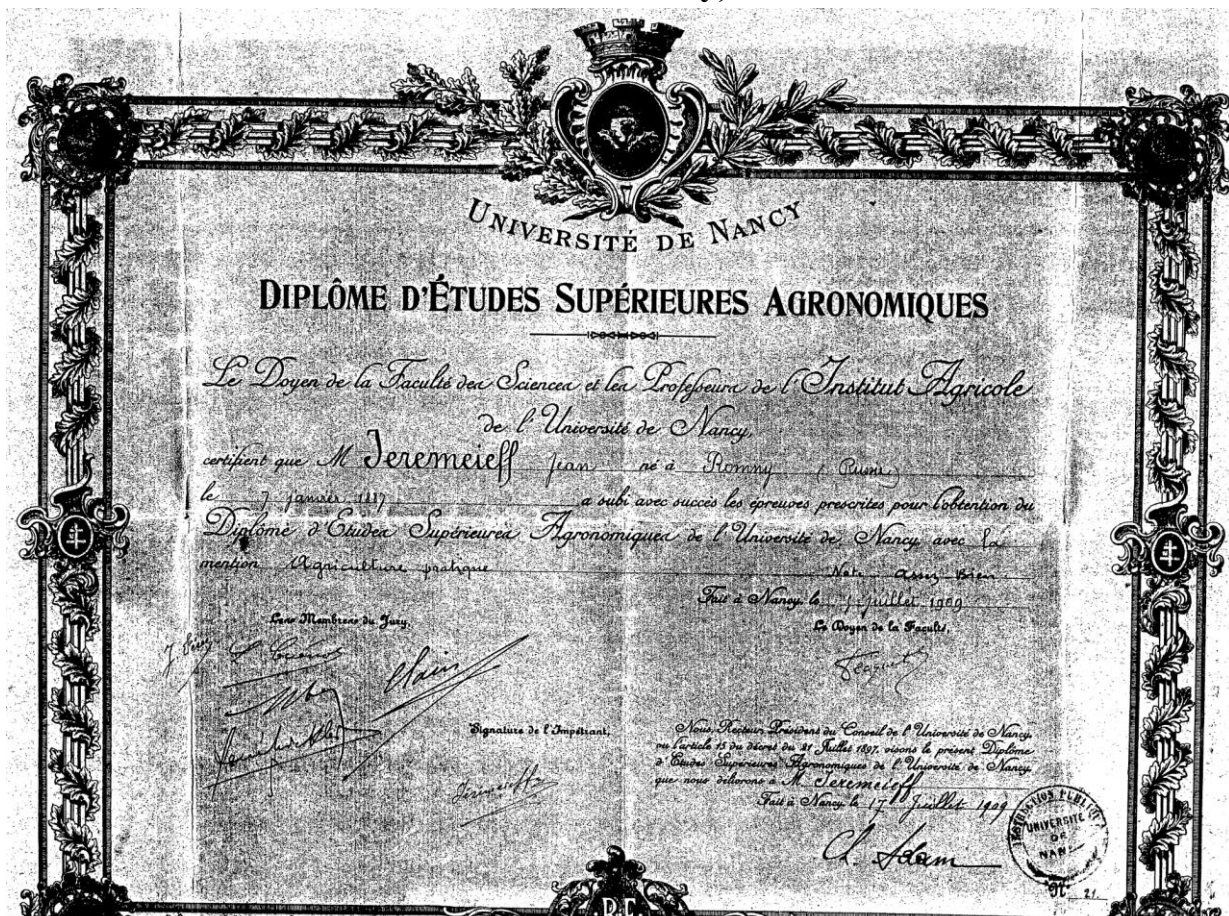 UNIVERSITÉ DE NANCY
DIPLÔME D'ÉTUDES SUPÉRIEURES AGRONOMIQUES
Le Doyen de la Faculté des Sciences et les Professeurs de l'Institut Agricole
de l'Université de Nancy,
certifient que M Jeremeieff Jean né à Romny (Russie)
le 7 janvier 1887 a subi avec succès les épreuves prescrites pour l'obtention du
Diplôme d'Etudes Supérieures Agronomiques de l'Université de Nancy avec la
mention Agriculture pratique Note assez Bien
Fait à Nancy, le 7 juillet 1909
Les Membres du Jury,
Le Doyen de la Faculté,
Signature de l'Impétrant,
Jeremeieff
Nous, Recteur, Président du Conseil de l'Université de Nancy,
vu l'article 15 du décret du 21 Juillet 1897, visons le présent Diplôme
d'Etudes Supérieures Agronomiques de l'Université de Nancy
que nous délivrons à M. Jeremeieff
Fait à Nancy, le 17 Juillet 1909
Ch. Adam
INSTRUCTION PUBLIQUE
UNIVERSITÉ
DE
NAN
N° 21
R F